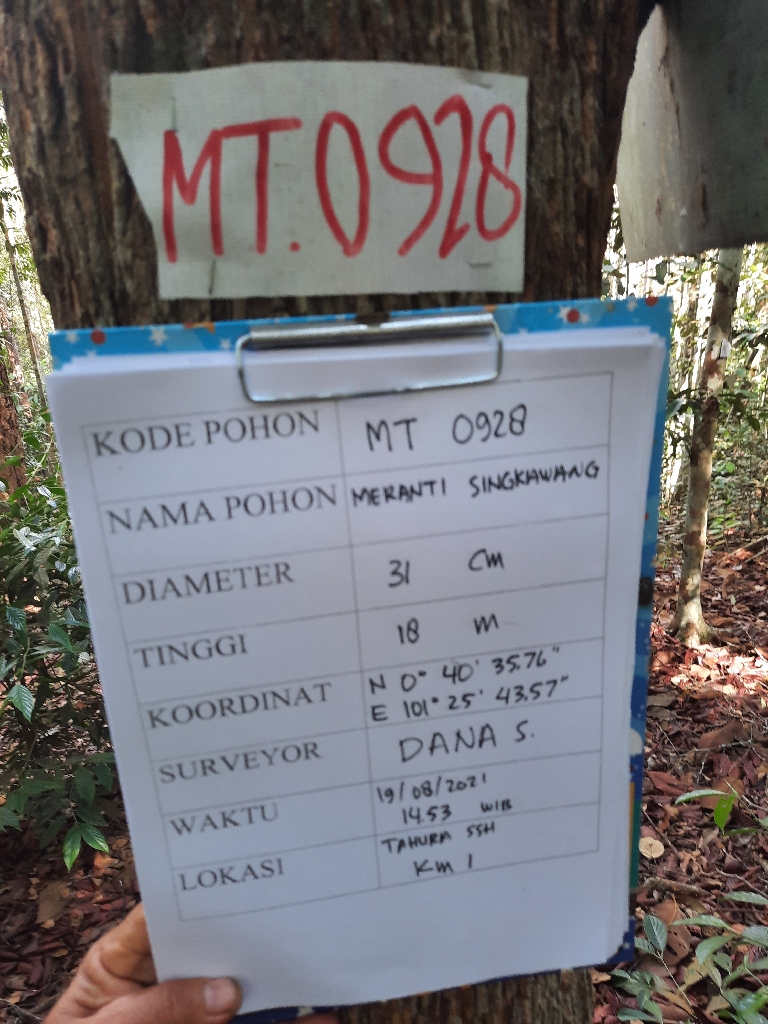 MT.0928
KODE POHON MT 0928
NAMA POHON MERANTI SINGKAWANG
DIAMETER 31 cm
TINGGI 18 m
KOORDINAT N 0° 40' 35.76"
E 101° 25' 43.57"
SURVEYOR DANA S.
WAKTU 19/08/2021
14.53 WIB
LOKASI TAHURA SSH
Km 1